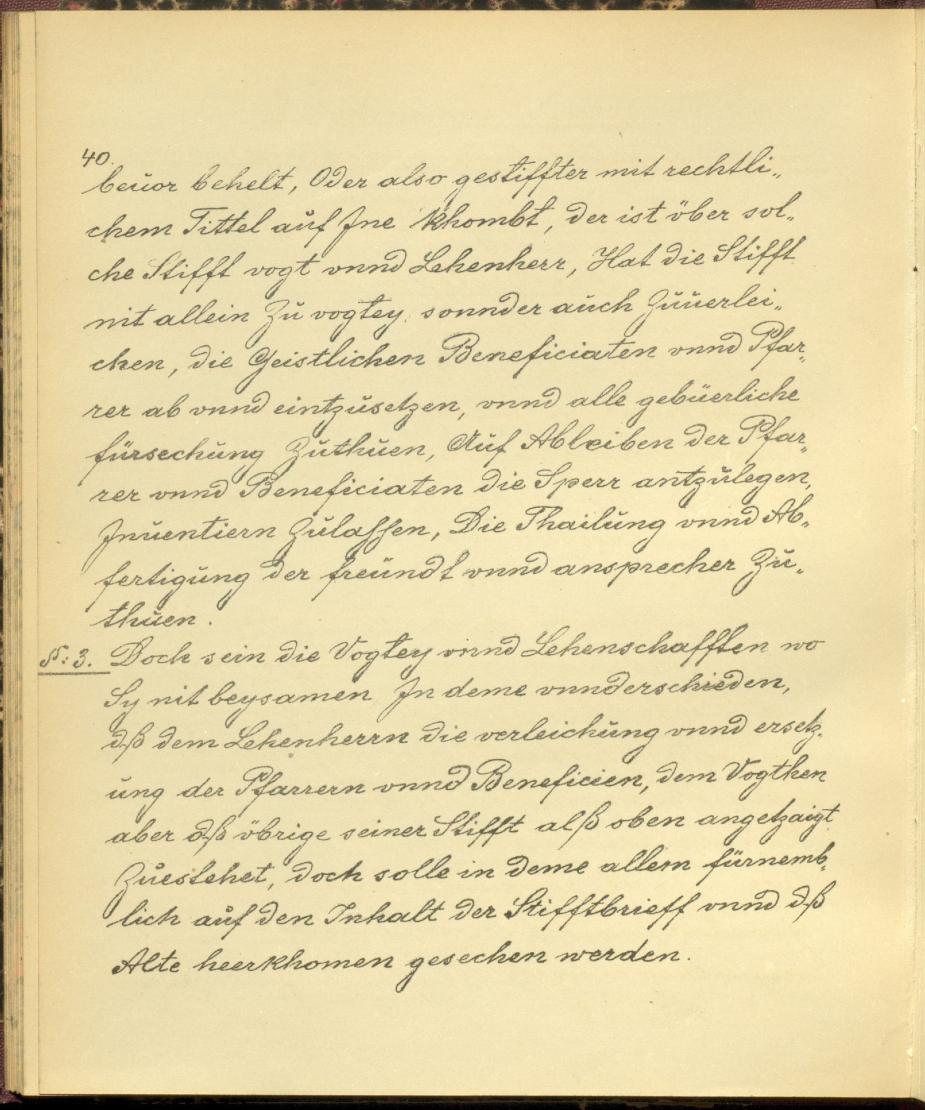 40.
beuor behelt, Oder also gestiffter mit rechtli„
chem Tittel auf Jne khombt, der ist über sol„
che Stifft vogt vnnd Lehenherr, Hat die Stifft
nit allein Zu vogtey sonnder auch Zuuerlei„
chen, die Geistlichen Beneficiaten vnnd Pfar„
rer ab vnnd eintzusetzen, vnnd alle gebüerliche
fürsechung Zuthuen, Auf Ableiben der Pfar„
rer vnnd Beneficiaten die Sperr antzulegen,
Jnuentiern Zulassen, Die Thailung vnnd Ab„
fertigung der freundt vnnd ansprecher Zu„
thuen.
§: 3. Doch sein die Vogtey vnnd Lehenschafften wo
Sy nit beysamen Jn deme vnnderschieden,
dß dem Lehenherrn die verleichung vnnd ersetz„
ung der Pfarrern vnnd Beneficien, dem Vogthen
aber dß übrige seiner Stifft alß oben angetzaigt
Zuestehet, doch solle in deme allem fürnemb„
lich auf den Inhalt der Stifftbrieff vnnd dß
Alte heerkhomen gesechen werden.